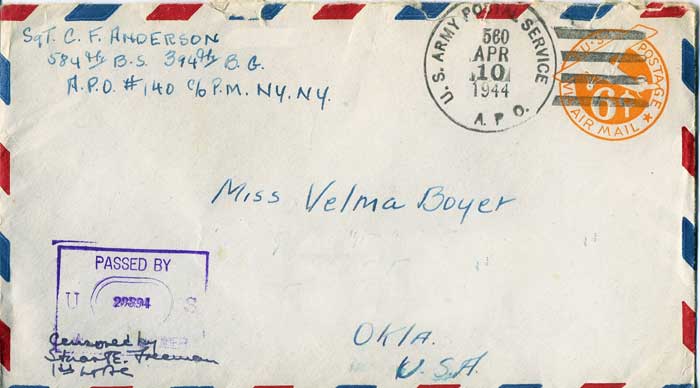 Sgt. C. F. Anderson
584th B.S. 394th B.G.
A.P.O. #140 c/o P.M. N.Y. N.Y.
U.S. ARMY POSTAL SERVICE
560
APR
10
1944
A.P.O.
U.S. POSTAGE
6¢
VIA AIR MAIL
Miss Velma Boyer
PASSED BY
U S
Censored by
Freeman
1st
Okla.
U.S.A.